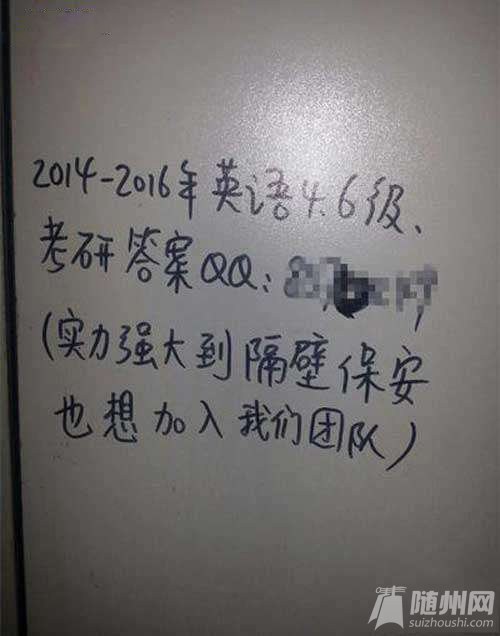 2014-2016年英语4.6级、
考研答案QQ:
(实力强大到隔壁保安
也想加入我们团队)
随州网
suizhoushi.com